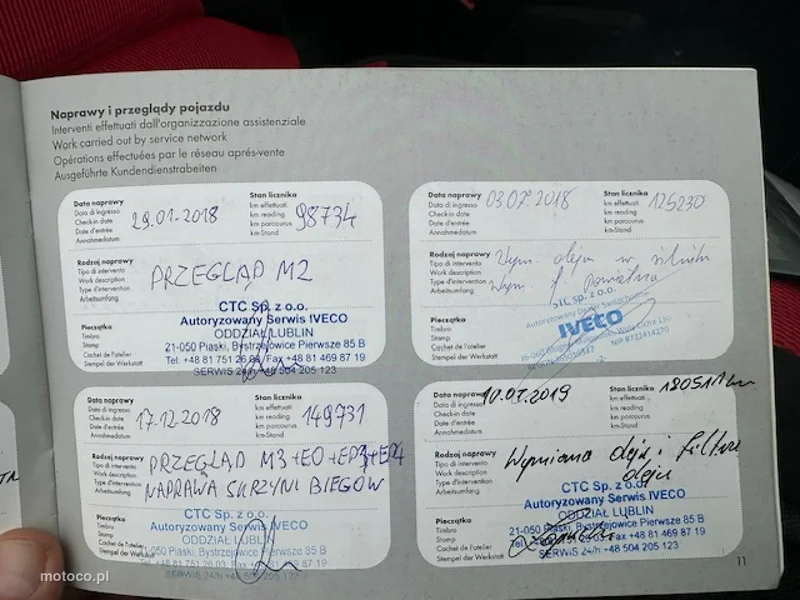 Naprawy i przeglądy pojazdu
Interventi effettuati dall'organizzazione assistenziale
Work carried out by service network
Opérations effectuées par le réseau aprés-vente
Ausgeführte Kundendienstrabeiten
Data naprawy
Data di ingresso
Check-in date
Date d'entrée
Annahmedatum
29.01-2018
Stan licznika
km effettuati
km reading
km parcourus
km-Stand
98734
Rodzaj naprawy
Tipo di intervento
Work description
Type d'intervention
Arbeitsumfang
PRZEGLĄD M2
Pieczątka
Timbro
Stamp
Cachet de l'atelier
Stempel der Werkstatt
CTC Sp. z o.o.
Autoryzowany Serwis IVECO
ODDZIAŁ LUBLIN
21-050 Piaski, Bystrzejowice Pierwsze 85 B
Tel. +48 81 751 26 Fax +48 81 469 87 19
SERWIS 24/h +48 504 205 123
Data naprawy
Data di ingresso
Check-in date
Date d'entrée
Annahmedatum
03.07.2018
Stan licznika
km effettuati
km reading
km parcourus
km-Stand
125230
Rodzaj naprawy
Tipo di intervento
Work description
Type d'intervention
Arbeitsumfang
Wym. oleju w silniku
wym. f. powietrza
Pieczątka
Timbro
Stamp
Cachet de l'atelier
Stempel der Werkstatt
Sp. z o.o.
IVECO
Data naprawy
Data di ingresso
Check-in date
Date d'entrée
Annahmedatum
17-12-2018
Stan licznika
km effettuati
km reading
km parcourus
km-Stand
149731
Rodzaj naprawy
Tipo di intervento
Work description
Type d'intervention
Arbeitsumfang
PRZEGLĄD M3+EO+EP3+EP4
NAPRAWA SKRZYNI BIEGÓW
Pieczątka
Timbro
Stamp
Cachet de l'atelier
Stempel der Werkstatt
CTC Sp. z o.o.
Autoryzowany Serwis IVECO
ODDZIAŁ LUBLIN
21-050 Piaski, Bystrzejowice Pierwsze 85 B
Tel. +48 81 751 26 03, Fax +48 81 469 87 19
SERWIS 24/h +48 504 205
Data naprawy
Data di ingresso
Check-in date
Date d'entrée
Annahmedatum
10.07.2019
Stan licznika
km effettuati
km reading
km parcourus
km-Stand
180511 km
Rodzaj naprawy
Tipo di intervento
Work description
Type d'intervention
Arbeitsumfang
Wymiana oleju i filtra
oleju
Pieczątka
Timbro
Stamp
Cachet de l'atelier
Stempel der Werkstatt
CTC Sp. z o.o.
Autoryzowany Serwis IVECO
ODDZIAŁ LUBLIN
21-050 Piaski, Bystrzejowice Pierwsze 85 B
+48 81 469 87 19
SERWIS 24/h +48 504 205 123
11
motoco.pl